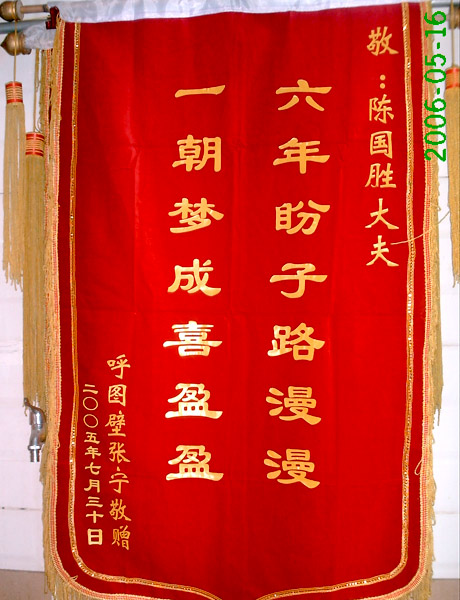 敬：陈国胜大夫
六年盼子路漫漫
一朝梦成喜盈盈
呼图壁张宁敬赠
二〇〇五年七月三十日
2006-05-16